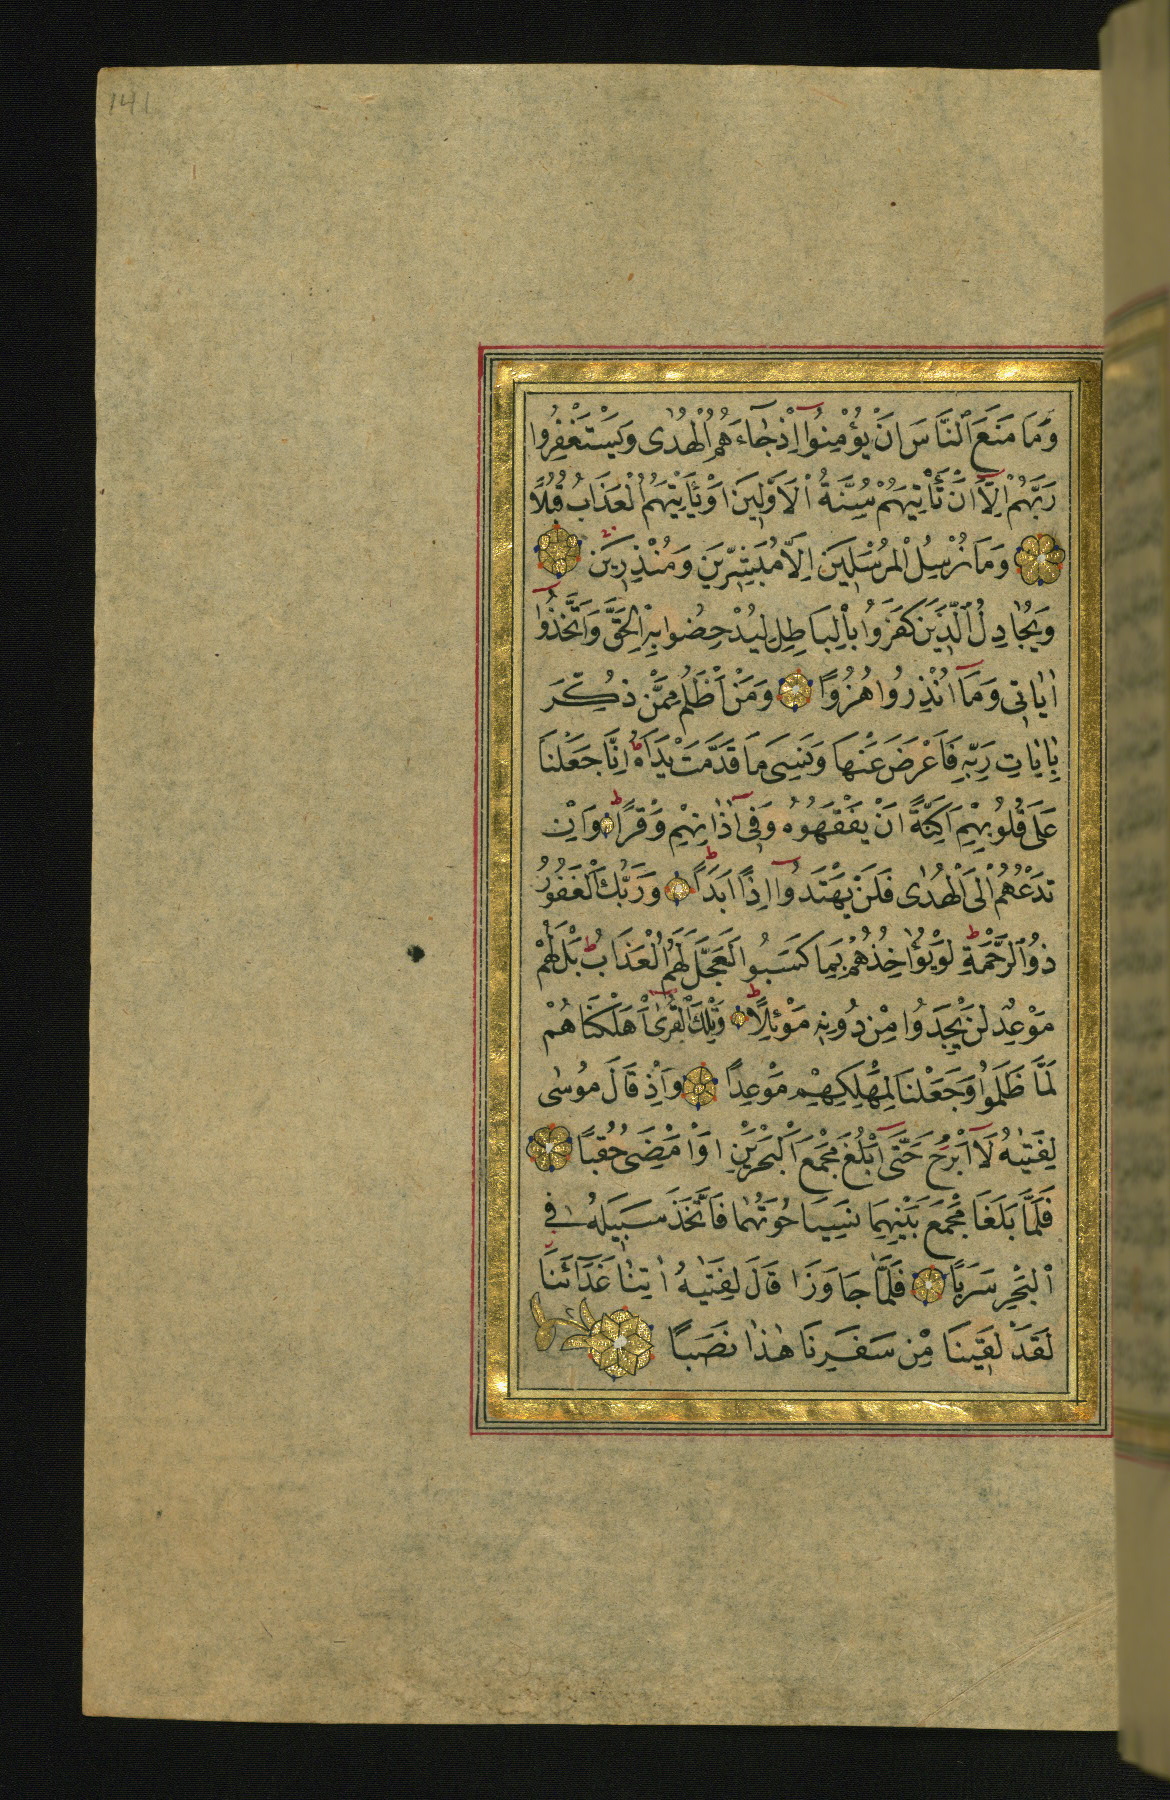 141
وَمَا مَنَعَ النَّاسَ اَنْ يُؤْمِنُٓوا اِذْ جَٓاءَهُمُ الْهُدٰى وَيَسْتَغْفِرُوا
رَبَّهُمْ اِلَّٓا اَنْ تَأْتِيَهُمْ سُنَّةُ الْاَوَّلِينَ اَوْ يَأْتِيَهُمُ الْعَذَابُ قُبُلًا
وَمَا نُرْسِلُ الْمُرْسَلِينَ اِلَّا مُبَشِّرِينَ وَمُنْذِرِينَ
وَيُجَادِلُ الَّذِينَ كَفَرُوا بِالْبَاطِلِ لِيُدْحِضُوا بِهِ الْحَقَّ وَاتَّخَذُٓوا
اٰيَاتِى وَمَٓا اُنْذِرُوا هُزُوًا وَمَنْ اَظْلَمُ مِمَّنْ ذُكِّرَ
بِاٰيَاتِ رَبِّهِ فَاَعْرَضَ عَنْهَا وَنَسِىَ مَا قَدَّمَتْ يَدَاهُ ط اِنَّا جَعَلْنَا
عَلٰى قُلُوبِهِمْ اَكِنَّةً اَنْ يَفْقَهُوهُ وَفِٓى اٰذَانِهِمْ وَقْرًا ط وَاِنْ
تَدْعُهُمْ اِلَى الْهُدٰى فَلَنْ يَهْتَدُٓوا اِذًا اَبَدًا ط وَرَبُّكَ الْغَفُورُ
ذُو الرَّحْمَةِ ط لَوْ يُؤَاخِذُهُمْ بِمَا كَسَبُوا لَعَجَّلَ لَهُمُ الْعَذَابَ ط بَلْ لَهُمْ
مَوْعِدٌ لَنْ يَجِدُوا مِنْ دُونِهِ مَوْئِلًا ط وَتِلْكَ الْقُرٰٓى اَهْلَكْنَاهُمْ
لَمَّا ظَلَمُوا وَجَعَلْنَا لِمَهْلِكِهِمْ مَوْعِدًا وَاِذْ قَالَ مُوسٰى
لِفَتٰيهُ لَٓا اَبْرَحُ حَتّٰٓى اَبْلُغَ مَجْمَعَ الْبَحْرَيْنِ اَوْ اَمْضِىَ حُقُبًا
فَلَمَّا بَلَغَا مَجْمَعَ بَيْنِهِمَا نَسِيَا حُوتَهُمَا فَاتَّخَذَ سَبِيلَهُ فِى
الْبَحْرِ سَرَبًا فَلَمَّا جَاوَزَا قَالَ لِفَتٰيهُ اٰتِنَا غَدَٓائَنَا
لَقَدْ لَقِينَا مِنْ سَفَرِنَا هٰذَا نَصَبًا